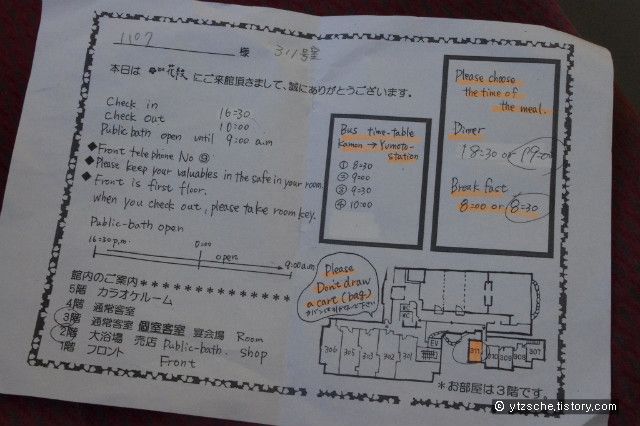 1107 様 311号室
本日は 花紋 にご来館頂きまして、誠にありがとうございます。
Check in 16=30
Check out 10=00
Public bath open until 9=00 a.m
◆Front telephone No ⑨
◆Please keep your valuables in the safe in your room.
◆Front is first floor.
when you check out, please take room key.
Public-bath open
16=30 p.m. 0=00 open 9:00 a.m
館内のご案内＊＊＊＊＊＊＊＊＊＊＊＊＊
5階 カラオケルーム
4階 通常客室
3階 通常客室 個室客室 宴会場 Room
2階 大浴場 売店 Public-bath. shop
1階 フロント Front
Bus time-table
Kamon → Yumoto-station
① 8=30
② 9=00
③ 9=30
④ 10=00
Please choose
the time of
the meal.
Dinner
18=30 or 19=00
Break fast
8=00 or 8=30
Please
Don't draw
a cart (bag)
306 305 303 302 301
EV
311 310 309 308 307
＊お部屋は3階です。
© ytzsche.tistory.com